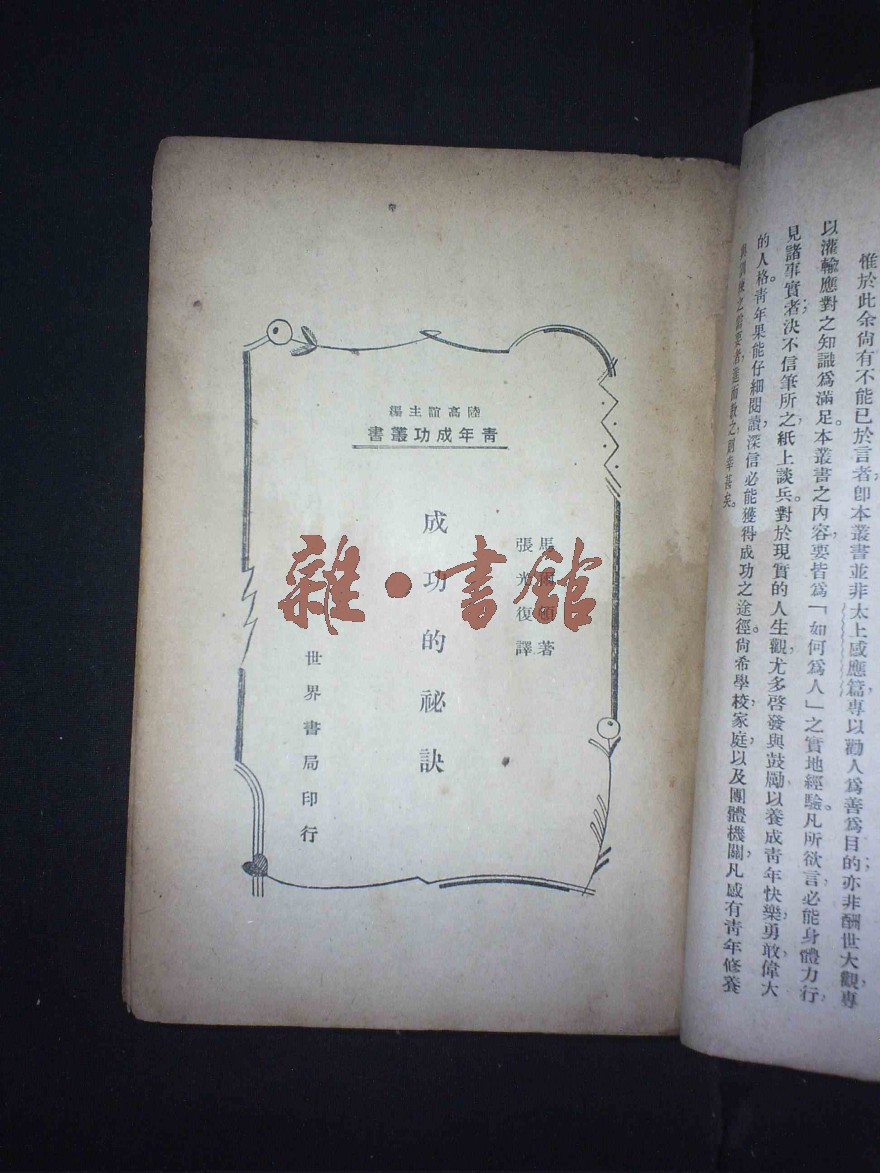 惟於此余尙有不能已於言者，卽本叢書並非太上感應篇，專以勸人爲善爲目的；亦非酬世大觀，專
以灌輸應對之知識爲滿足。本叢書之內容，要皆爲「如何爲人」之實地經驗。凡所欲言，必能身體力行，
見諸事實者；決不信筆所之，紙上談兵。對於現實的人生觀，尤多啓發與鼓勵，以養成靑年快樂，勇敢，偉大
的人格。靑年果能仔細閱讀，深信必能獲得成功之途徑。尙希學校，家庭，以及團體機關，凡感有靑年修養
與訓練之需要者，進而敎之，則幸甚矣。
陸高誼主編
靑年成功叢書
馬 著
張光復譯
成功的祕訣
世界書局印行
雜·書館